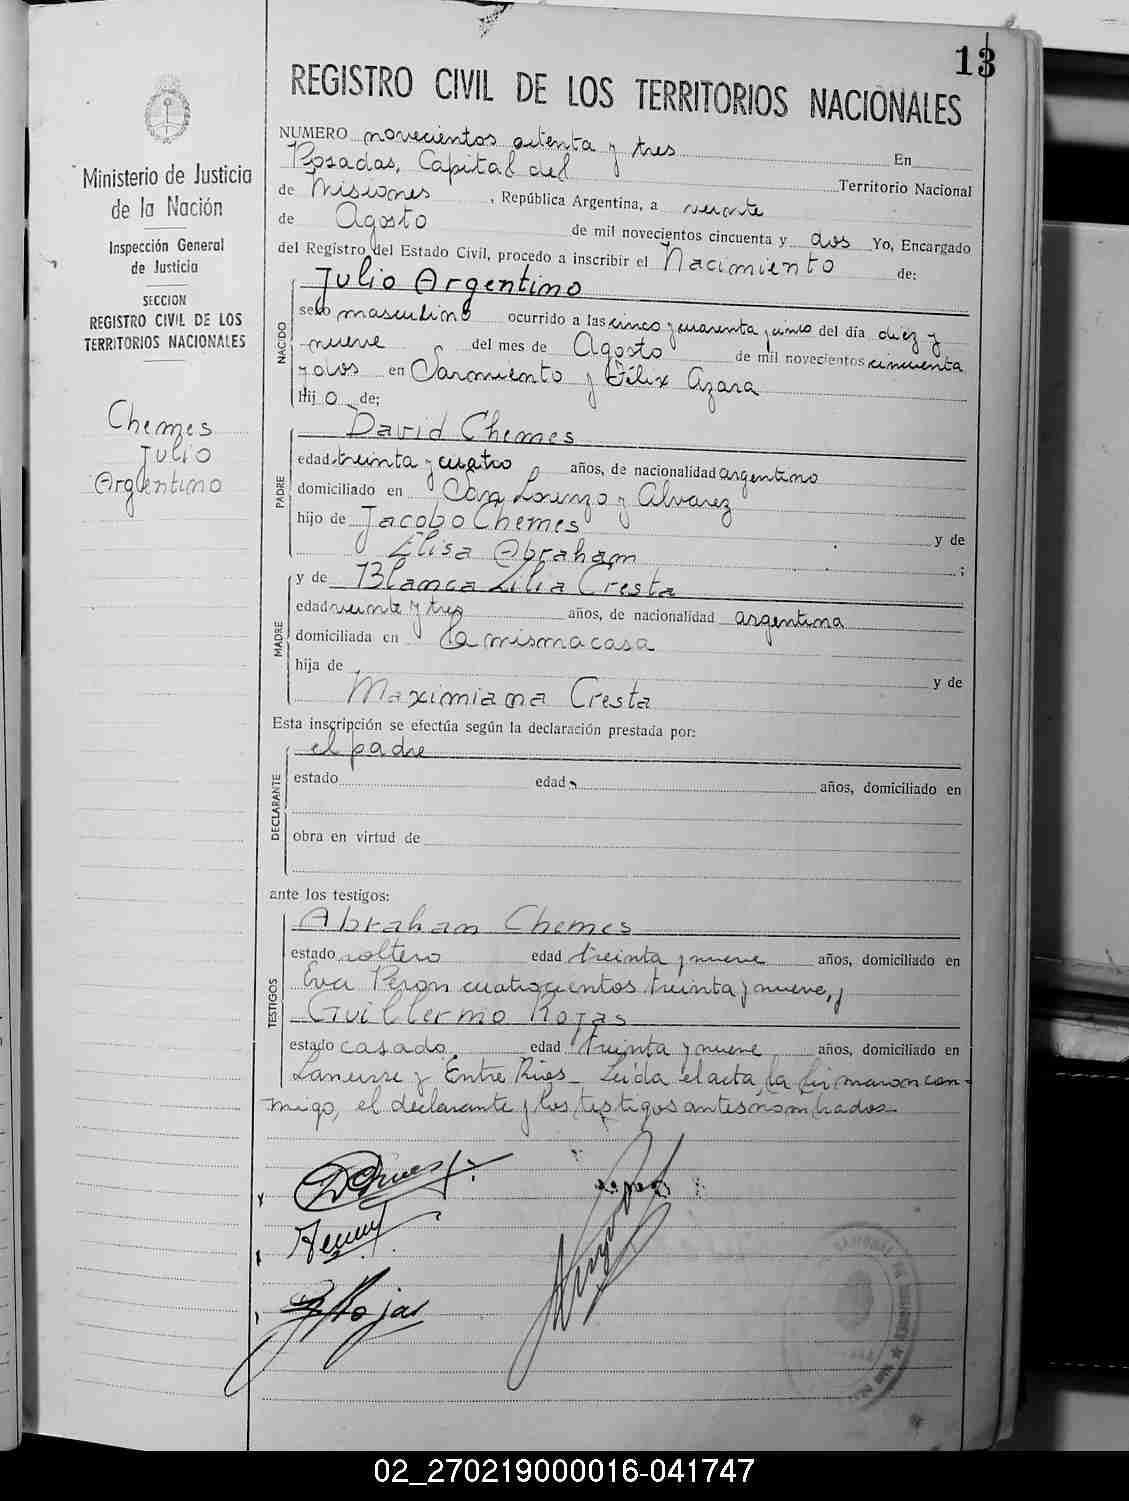 13
REGISTRO CIVIL DE LOS TERRITORIOS NACIONALES
Ministerio de Justicia
de la Nación
Inspección General
de Justicia
SECCION
REGISTRO CIVIL DE LOS
TERRITORIOS NACIONALES
Chemes
Julio
Argentino
NUMERO novecientos octenta y tres En
Posadas, Capital del Territorio Nacional
de Misiones, República Argentina, a veinte
de Agosto de mil novecientos cincuenta y dos Yo, Encargado
del Registro del Estado Civil, procedo a inscribir el Nacimiento de:
NACIDO
Julio Argentino
sexo masculino ocurrido a las cinco y cuarenta y cinco del día diez y
nueve del mes de Agosto de mil novecientos cincuenta
y dos en Sarmiento y Félix Azara
Hijo de:
PADRE
David Chemes
edad treinta y cuatro años, de nacionalidad argentino
domiciliado en San Lorenzo y Alvarez
hijo de Jacobo Chemes y de
Elisa Abraham ;
MADRE
y de Blanca Lilia Cresta
edad veinte y tres años, de nacionalidad argentina
domiciliada en la misma casa
hija de y de
Maximiana Cresta
Esta inscripción se efectúa según la declaración prestada por:
DECLARANTE
el padre
estado edad años, domiciliado en
obra en virtud de
ante los testigos:
TESTIGOS
Abraham Chemes
estado soltero edad treinta y nueve años, domiciliado en
Eva Peron cuatrocientos treinta y nueve, y
Guillermo Rojas
estado casado, edad treinta y nueve años, domiciliado en
Lanusse y Entre Rios - Leída el acta, la firmaron con-
migo, el declarante y los testigos antes nombrados
Rojas
02_270219000016-041747